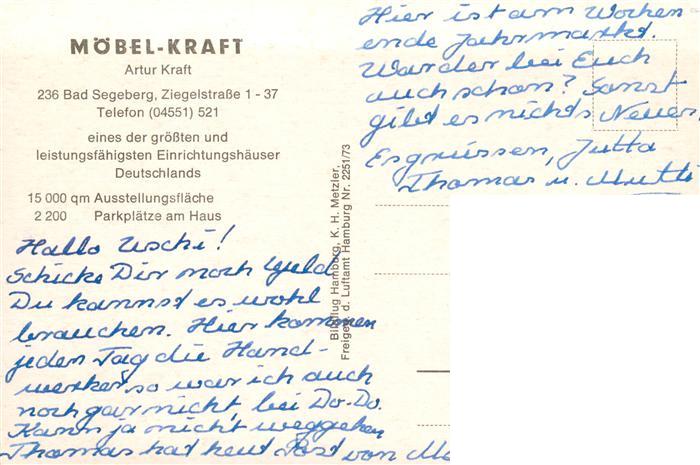 MÖBEL-KRAFT
Artur Kraft
236 Bad Segeberg, Ziegelstraße 1 - 37
Telefon (04551) 521
eines der größten und
leistungsfähigsten Einrichtungshäuser
Deutschlands
15 000 qm Ausstellungsfläche
2 200 Parkplätze am Haus
Hallo Uschi!
Schicke Dir noch Geld
Du kannst es wohl
brauchen. Hier kommen
jeden Tag die Hand-
werker so war ich auch
noch gar nicht, bei Do-Do.
Kann ja nicht weggehen
Thomas hat heut Post von
Bildflug Hamburg, K. H. Metzler,
Freigeg. d. Luftamt Hamburg Nr. 2251/73
Hier ist am Wochen
ende Jahrmarkt.
War der bei Euch
auch schon? Sonst
gibt es nichts Neues.
Es grüssen, Jutta
Thomas u. Mutti